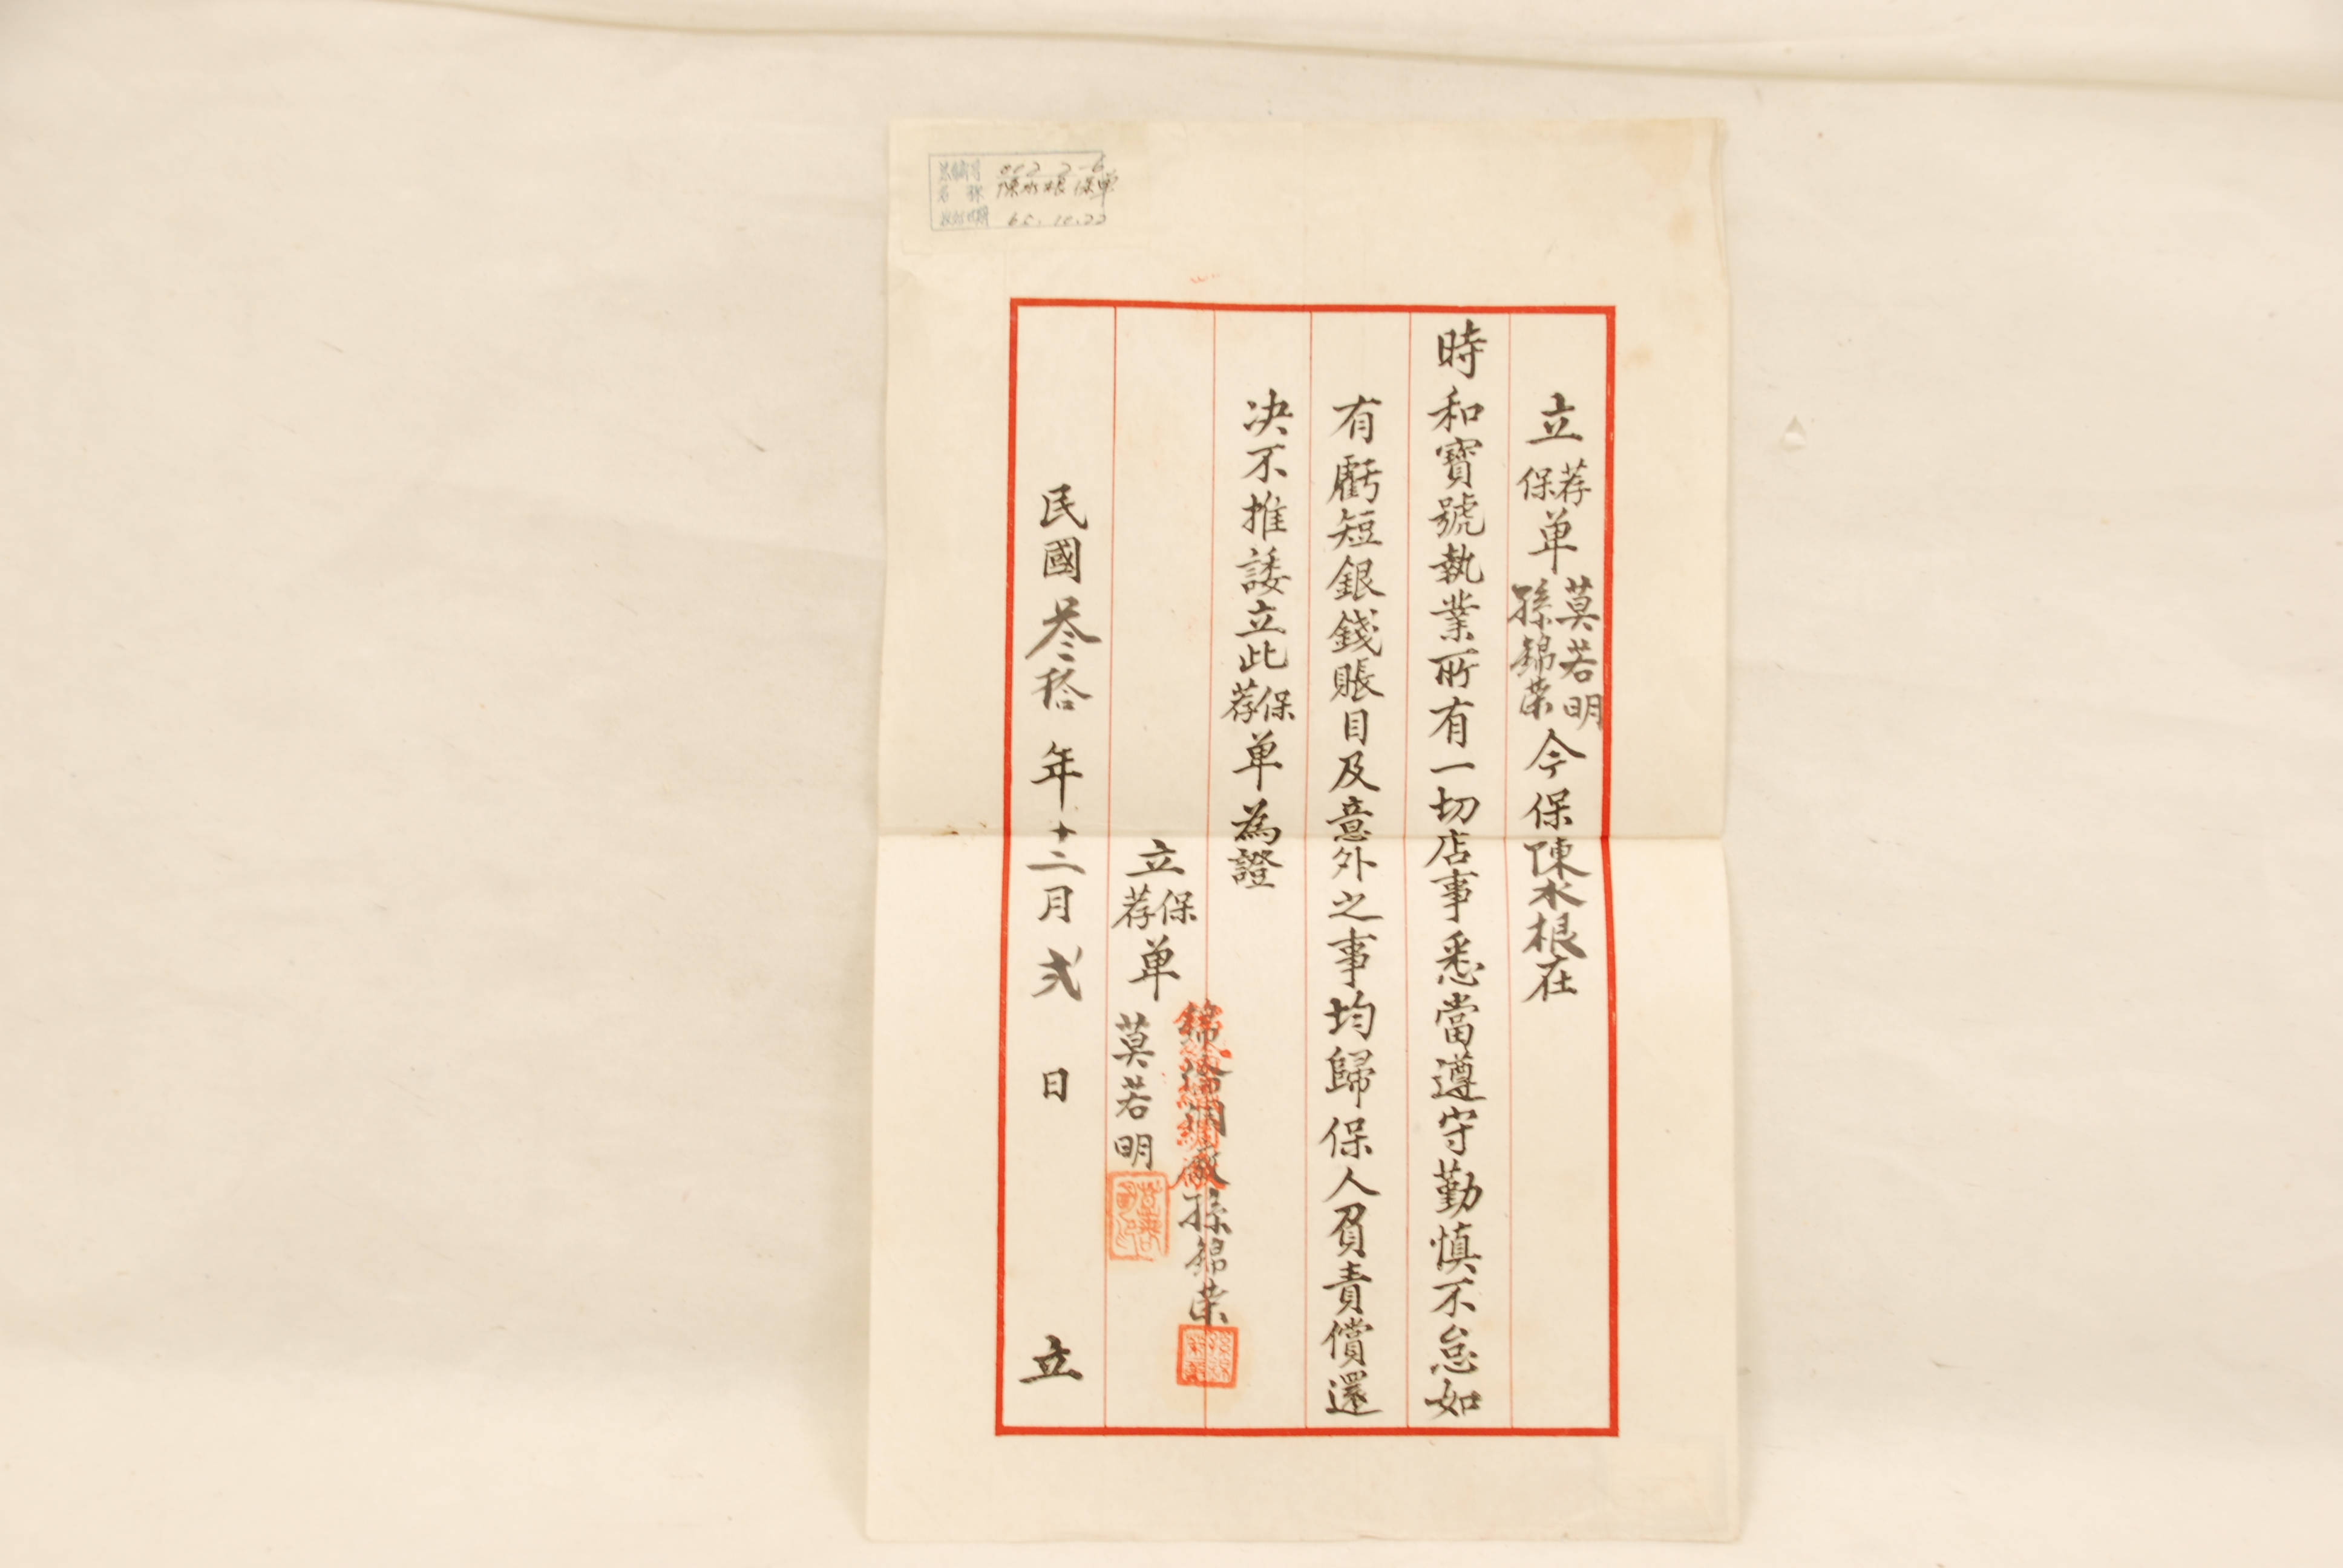 名稱 陳水根保單
65.10.22
立荐保单莫若明孫錦荣今保陳水根在
時和寶號執業所有一切店事悉當遵守勤慎不怠如
有虧短銀錢賬目及意外之事均歸保人負責償還
决不推諉立此保荐单為證
孫錦荣
立保荐单 莫若明
民國叁拾年十二月弍日 立